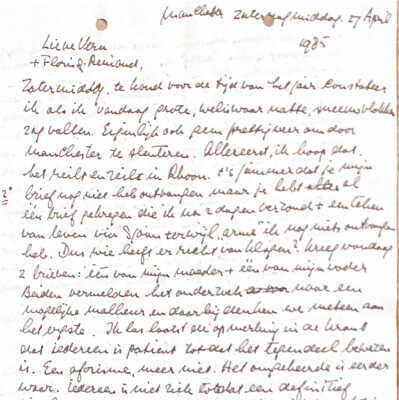 Manchester Zaterdagmiddag. 27 April
1985
Lieve Vera
+ Floris & Reinoud,
Zatermiddag, te koud voor de tijd van het jaar constateer
ik als ik vandaag grote, weliswaar natte, sneeuwvlokken
zag vallen. Eigenlijk ook geen prettig weer om door
Manchester te slenteren. Allereerst, ik hoop dat
het reilt en zeilt in Rhoon. 't is jammer dat je mijn
brief nog niet heb ontvangen maar je hebt al
2e
een brief gekregen die ik na 2 dagen verzond + een teken
van leven via terwijl "arme" ik nog niets ontvangen
heb. Dus wie heeft er recht van klagen? Kreeg vandaag
2 brieven: één van mijn moeder + één van mijn vader
Beiden vermelden het onderzoek naar een
mogelijke malheur en daarbij denken we meteen aan
het ergste. Ik las laatst de opmerking in de krant
dat iedereen is patient tot dat het tegendeel bewezen
is. Een aforisme, meer niet. Het omgekeerde is eerder
waar. Iedereen is niet ziek totdat een definitief